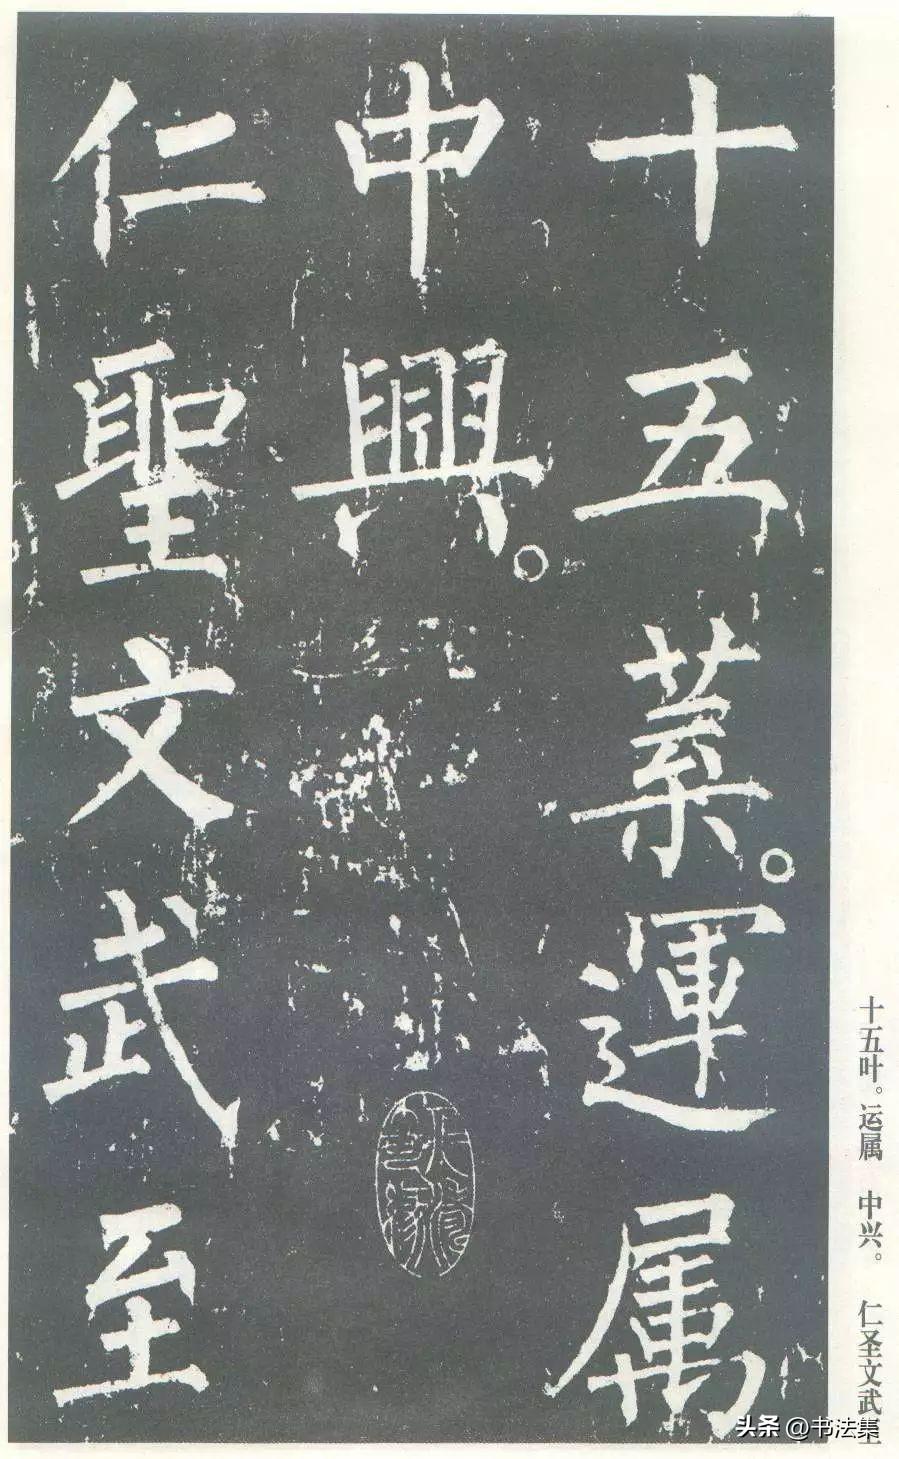 十五葉。運属
中興。
仁聖文武至
十五叶。运属 中兴。 仁圣文武至
头条 @书法集